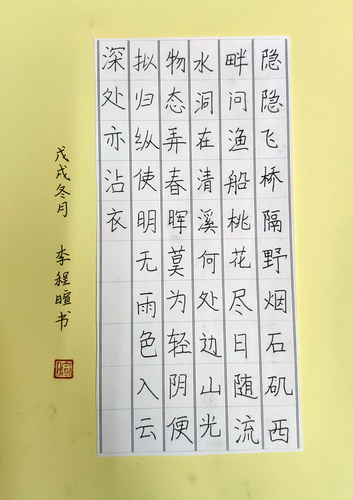 隐隐飞桥隔野烟石矶西
畔问渔船桃花尽日随流
水洞在清溪何处边山光
物态弄春晖莫为轻阴便
拟归纵使明无雨色入云
深处亦沾衣
戊戌冬月 李程暄书